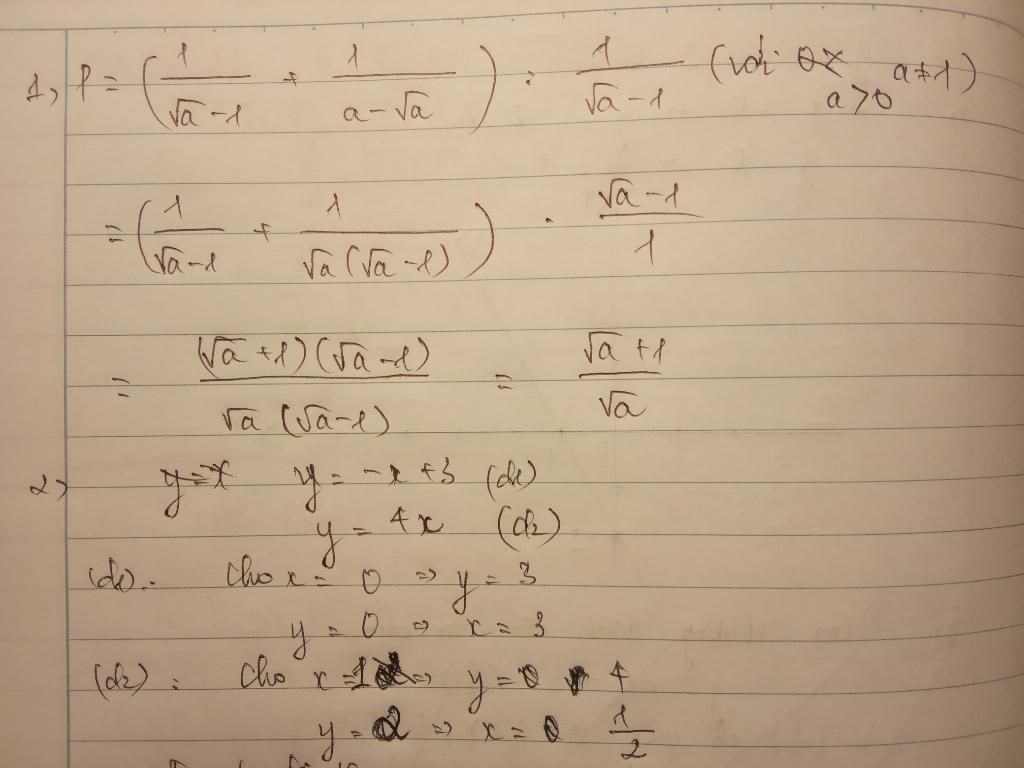 1, P = (1/(√a-1) + 1/(a-√a)) : 1/(√a-1) (với a>0 a≠1)
= (1/(√a-1) + 1/(√a(√a-1))) . (√a-1)/1
= (√a+1)(√a-1)/(√a(√a-1)) = (√a+1)/√a
2, y = -x+3 (d1)
y = 4x (d2)
(d1): Cho x = 0 ⇒ y = 3
y = 0 ⇒ x = 3
(d2): Cho x = 1 ⇒ y = 4
y = 2 ⇒ x = 1/2